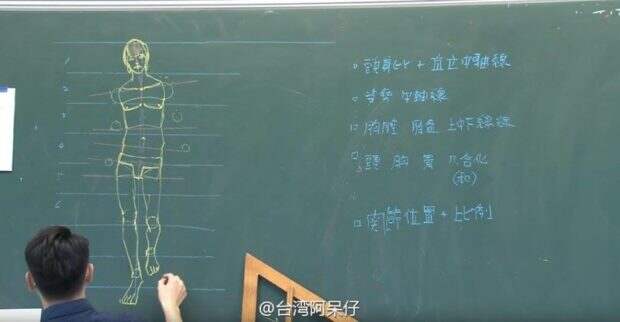 頭身比 + 直立中軸線
姿勢 中軸線
胸腔 骨盆 上下緣線
頭 胸 骨 合化
關節位置 + 比例
@台湾阿呆仔